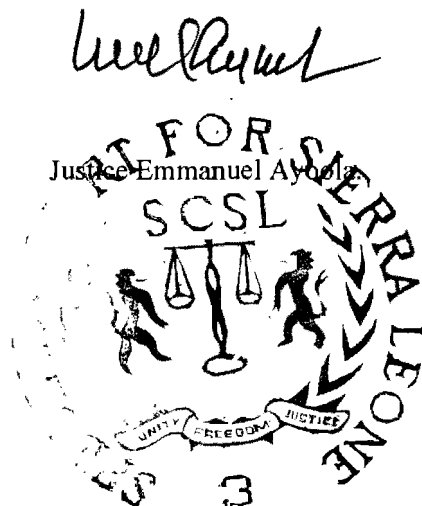 Justice Emmanuel Ayoola.
RT FOR SIERRA LEONE
SCSL
UNITY FREEDOM JUSTICE